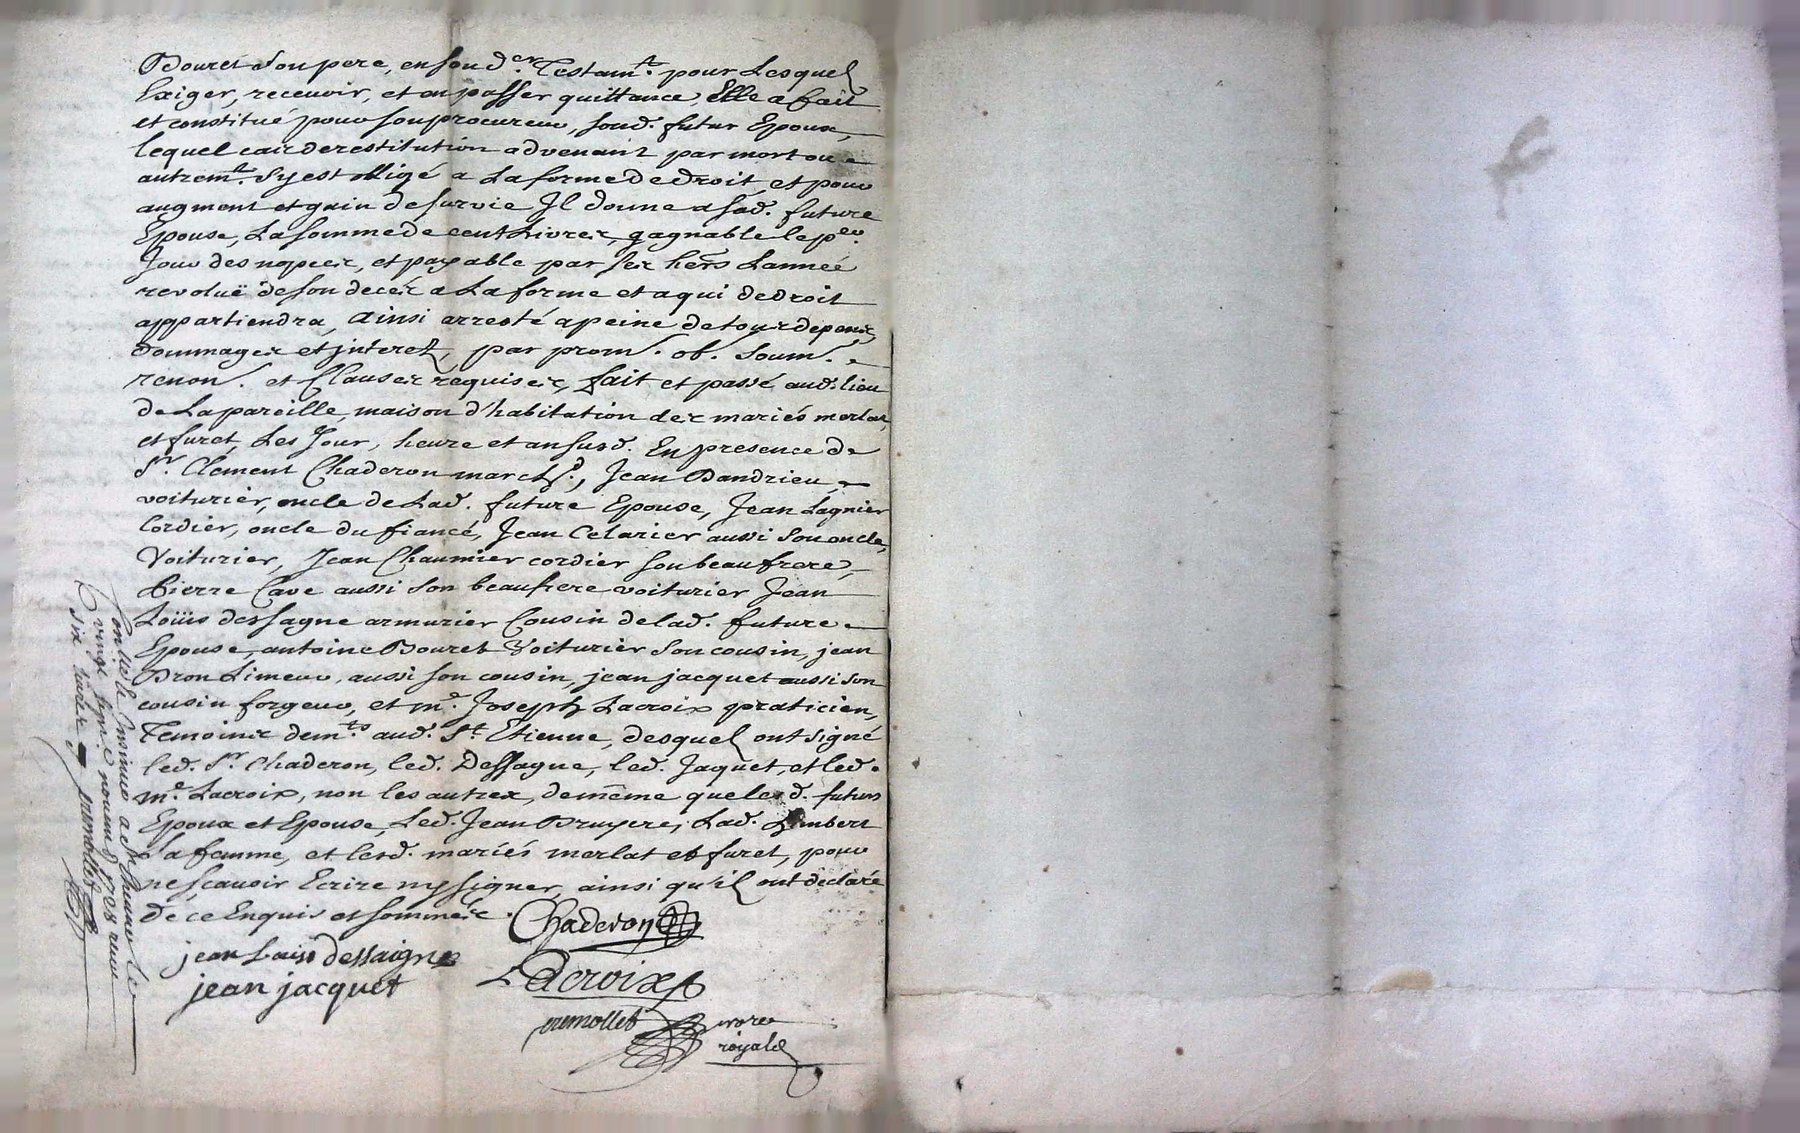 Bouret son pere, en son d.er Testam.t pour Lesquel
Exiger, recevoir, et en passer quittance, Elle a fait
et constitué pour son procureur, sond. futur Epoux,
lequel cas de restitution advenant par mort ou
autrem.t s'y est obligé a La forme de droit, et pour
augment et gain de survie Jl donne a sad. future
Epouse, La somme de cent Livres, gagnable le p.er
Jour des nopces, et payable par ses hers Lannée
revoluë de son decés a La forme et a qui de droit
appartiendra, ainsi arresté a peine de tous depens,
dommages et jnterets, par prom. ob. soum.
renon. et Clauses requises, fait et passé aud. lieu
de Lapareille, maison d'habitation des mariés merlat,
et furet, Les Jour, heure et an susd. En presence de
S.r Clement Chaderon march.d, Jean Dandrieu,
voiturier, oncle de Lad. future Epouse, Jean Lagnier
Cordier, oncle du fiancé, Jean Celarier aussi son oncle,
Voiturier, Jean Chaumier cordier son beaufrere,
Pierre Cave aussi son beaufrere voiturier Jean
Loüis dessagne armurier Cousin de lad. future
Epouse, antoine Bouret Voiturier son cousin, jean
Dron Limeur, aussi son cousin, jean jacquet aussi son
cousin forgeur, et m.e Joseph Lacroix praticien,
Temoins dem.ts aud. S.t Etienne, desquels ont signé
led. S.r Chaderon, led. Dessagne, led. Jaquet, et led.
m.e Lacroix, non les autres, de même que lesd. futurs
Epoux et Epouse, Led. Jean Bruyere, Lad. Limbert
sa femme, et lesd. mariés merlat et furet, pour
ne sçavoir Ecrire ny signer, ainsi qu'ils ont declaré
de ce Enquis et sommés.
Chaderon
jean Louis dessaigne
Lacroix
jean jacquet
premollet
royal
Con.lé & Insinué a St Etienne le
vingt 1708 receu
six livres
premollet